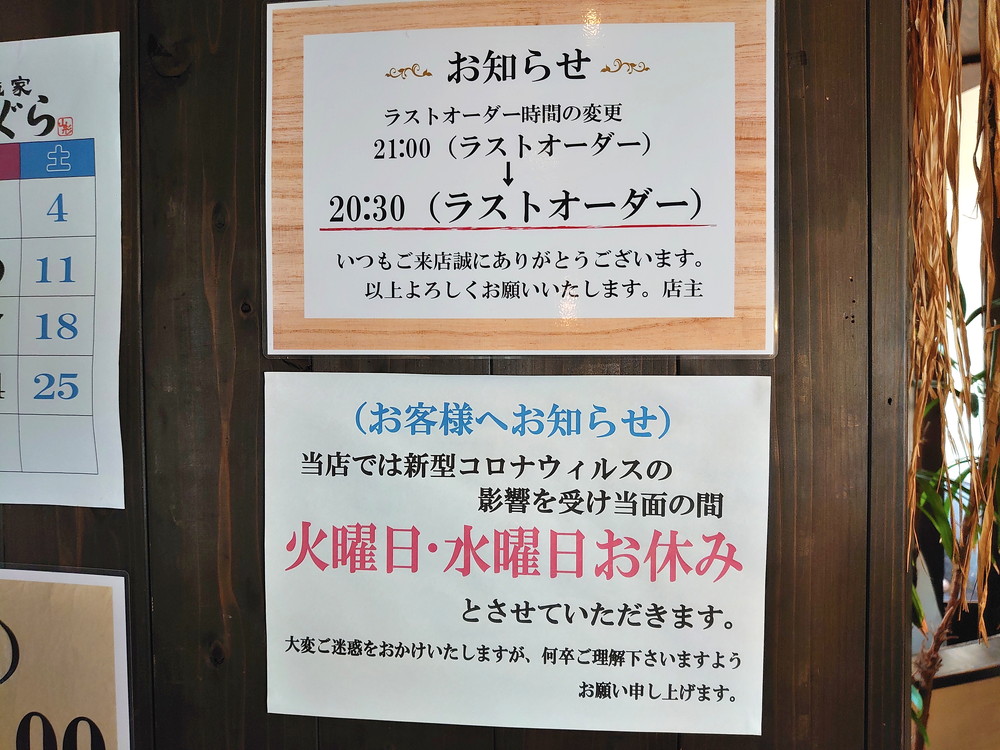 家
ぐら
土
4
11
18
25
お知らせ
ラストオーダー時間の変更
21:00（ラストオーダー）
↓
20:30（ラストオーダー）
いつもご来店誠にありがとうございます。
以上よろしくお願いいたします。店主
（お客様へお知らせ）
当店では新型コロナウィルスの
影響を受け当面の間
火曜日･水曜日お休み
とさせていただきます。
大変ご迷惑をおかけいたしますが、何卒ご理解下さいますよう
お願い申し上げます。
00